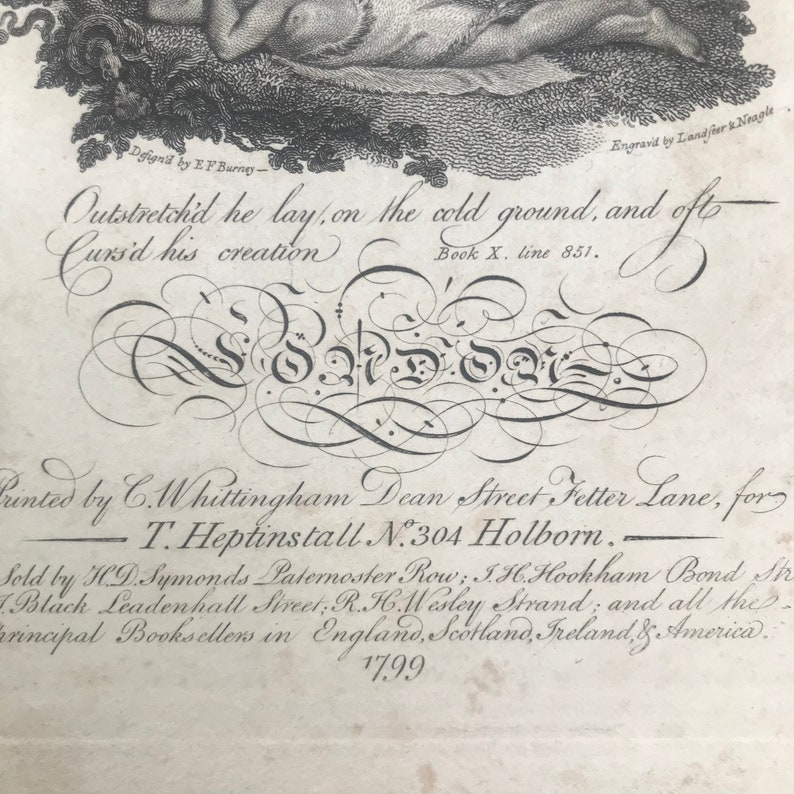 Design'd by E F Burney
Engrav'd by Landseer & Neagle
Outstretch'd he lay, on the cold ground, and oft
Curs'd his creation Book X. line 851.
LONDON
Printed by C. Whittingham Dean Street Fetter Lane, for
T. Heptinstall No. 304 Holborn.
Sold by H.D. Symonds Paternoster Row; J.H. Hookham Bond Str
J. Black Leadenhall Street; R.H. Wesley Strand; and all the
Principal Booksellers in England, Scotland, Ireland, & America.
1799